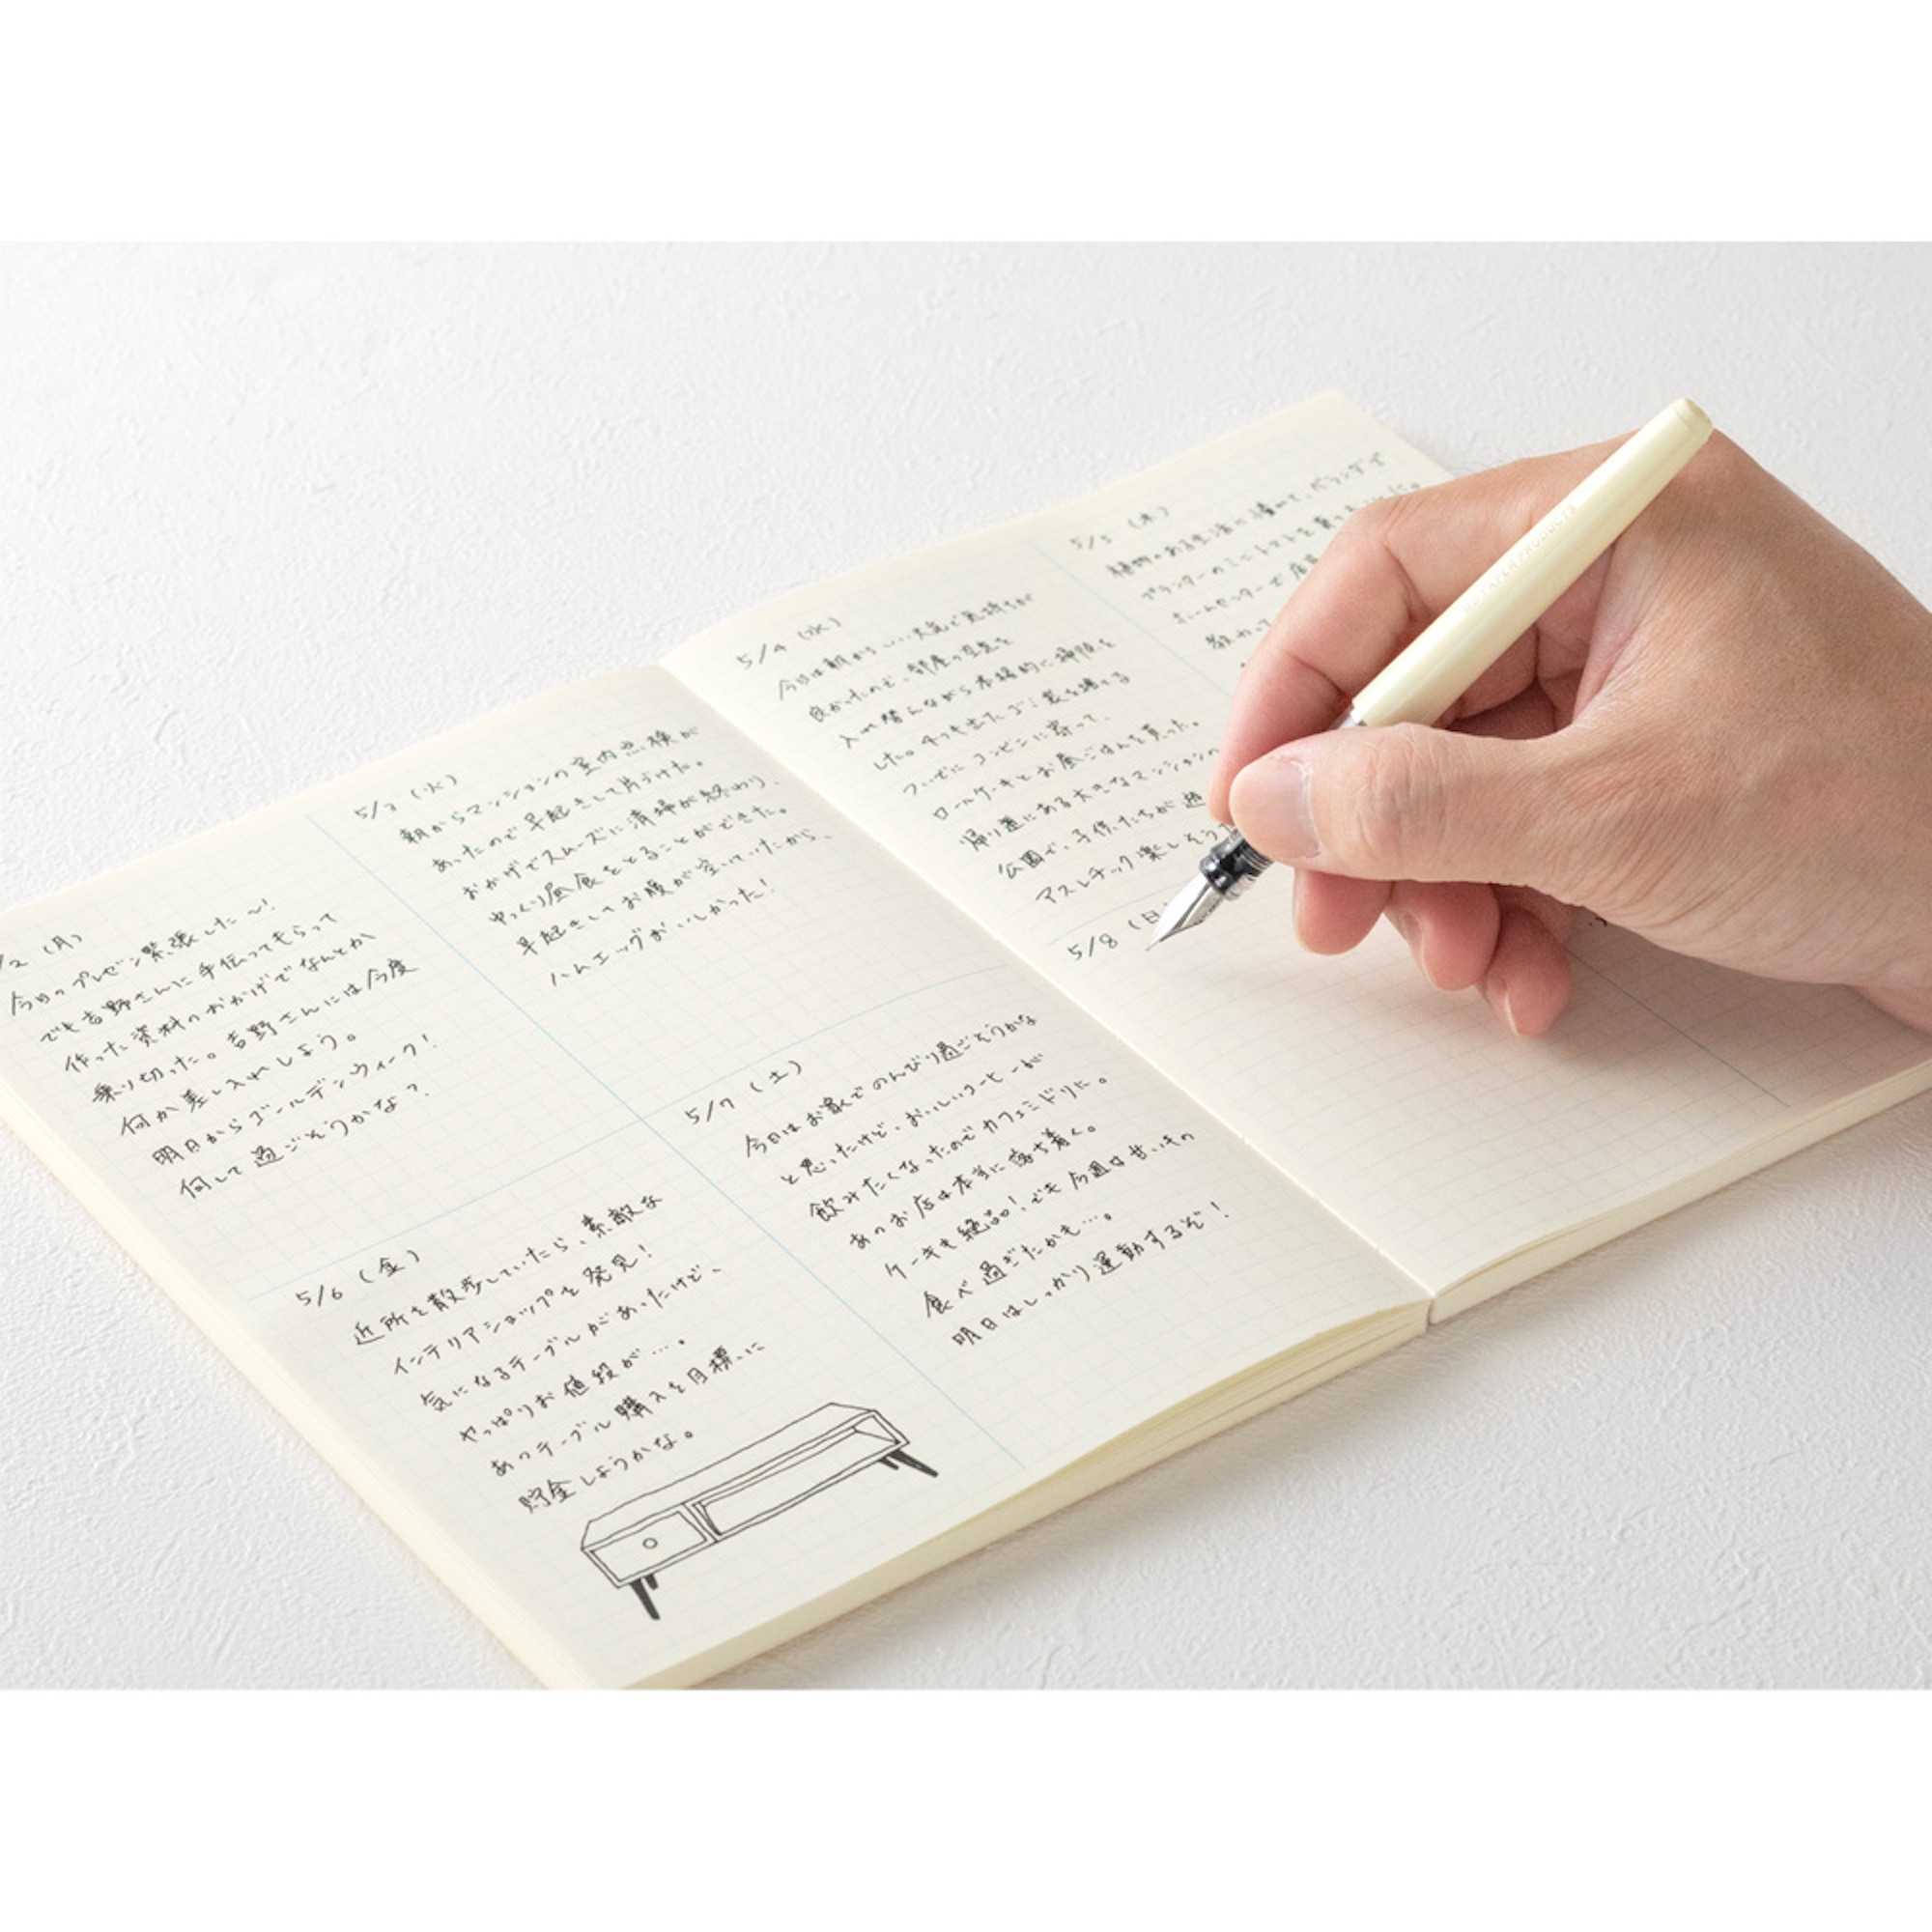 /2 (月)
今日のプレゼン緊張した〜!
でも吉野さんに手伝ってもらって
作った資料のおかげでなんとか
乗り切った。吉野さんには今度
何か差し入れしよう。
明日からゴールデンウィーク!
何して過ごそうかな?
5/3 (火)
朝からマンションの室内点検が
あったので早起きして片づけた。
おかげでスムーズに清掃が終わり、
ゆっくり昼食をとることができた。
早起きしてお腹が空いていたから、
ハムエッグがおいしかった!
5/6 (金)
近所を散歩していたら、素敵な
インテリアショップを発見!
気になるテーブルがあったけど、
やっぱりお値段が…。
あのテーブル購入を目標に
貯金しようかな。
5/7 (土)
今日はお家でのんびり過ごそうかな
と思ったけど、おいしいコーヒーが
飲みたくなったのでカフェミドリに。
あのお店は本当に落ち着く。
ケーキも絶品!でも今週は甘いもの
食べ過ぎたかも…。
明日はしっかり運動するぞ!
5/4 (水)
今日は朝からいい天気で気持ちが
良かったので、部屋の空気を
入れ替えながら本格的に掃除を
した。
ついでにコンビニに寄って、
ロールケーキとお昼ごはんを買った。
帰り道にある大きなマンションの
公園で、子供たちが遊
アスレチック楽しそう
5/5 (木)
植物のある生活に憧れて、ベランダで
プランターのミニトマトを育
ホームセンターで店
教わって
5/8 (日
PAPER PRODUCTS